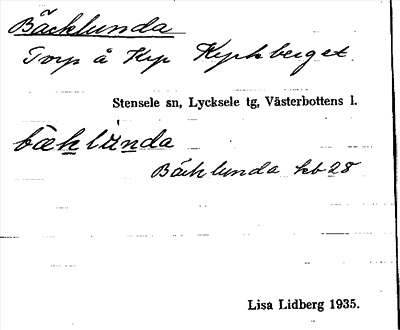 Bäcklunda
Torp å Krp Kyrkberget
Stensele sn, Lycksele tg, Västerbottens l.
bæklùnda
Bäcklunda kb 28
Lisa Lidberg 1935.